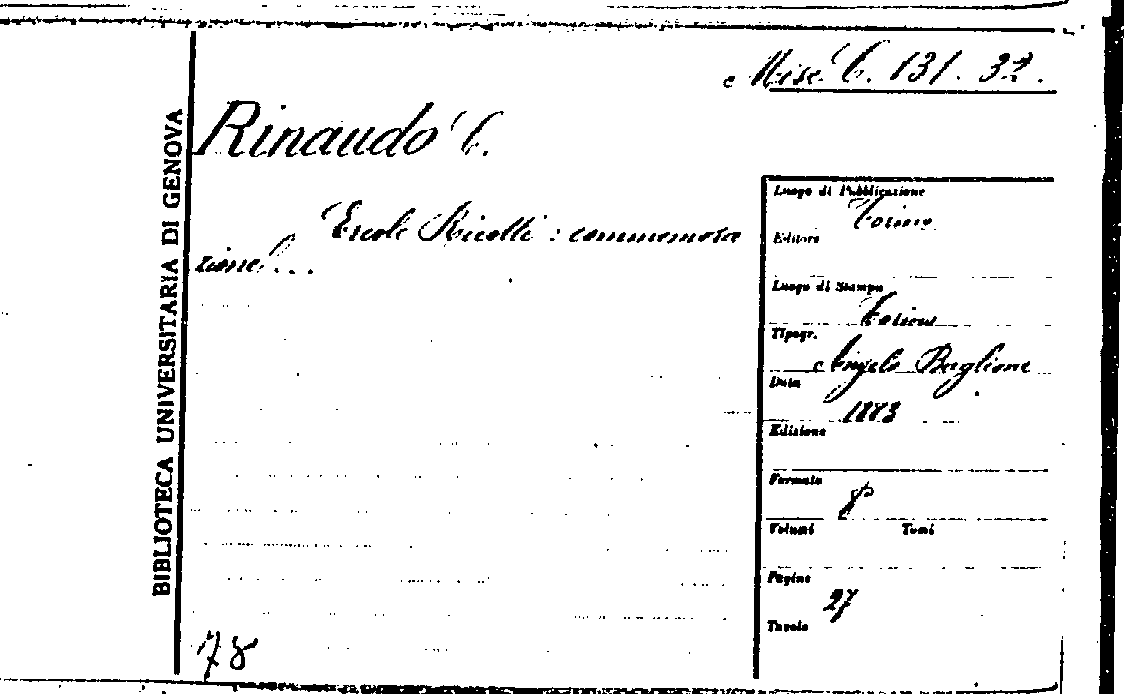 Misc. C. 131. 32.
BIBLIOTECA UNIVERSITARIA DI GENOVA
Rinaudo C.
Ercole Ricotti : commemora
zione...
Luogo di Pubblicazione
Torino
Editore
Luogo di Stampa
Torino
Tipogr.
Angelo Baglione
Data
1883
Edizione
Formato
8º
Volumi Tomi
Pagine
27
Tavole
78